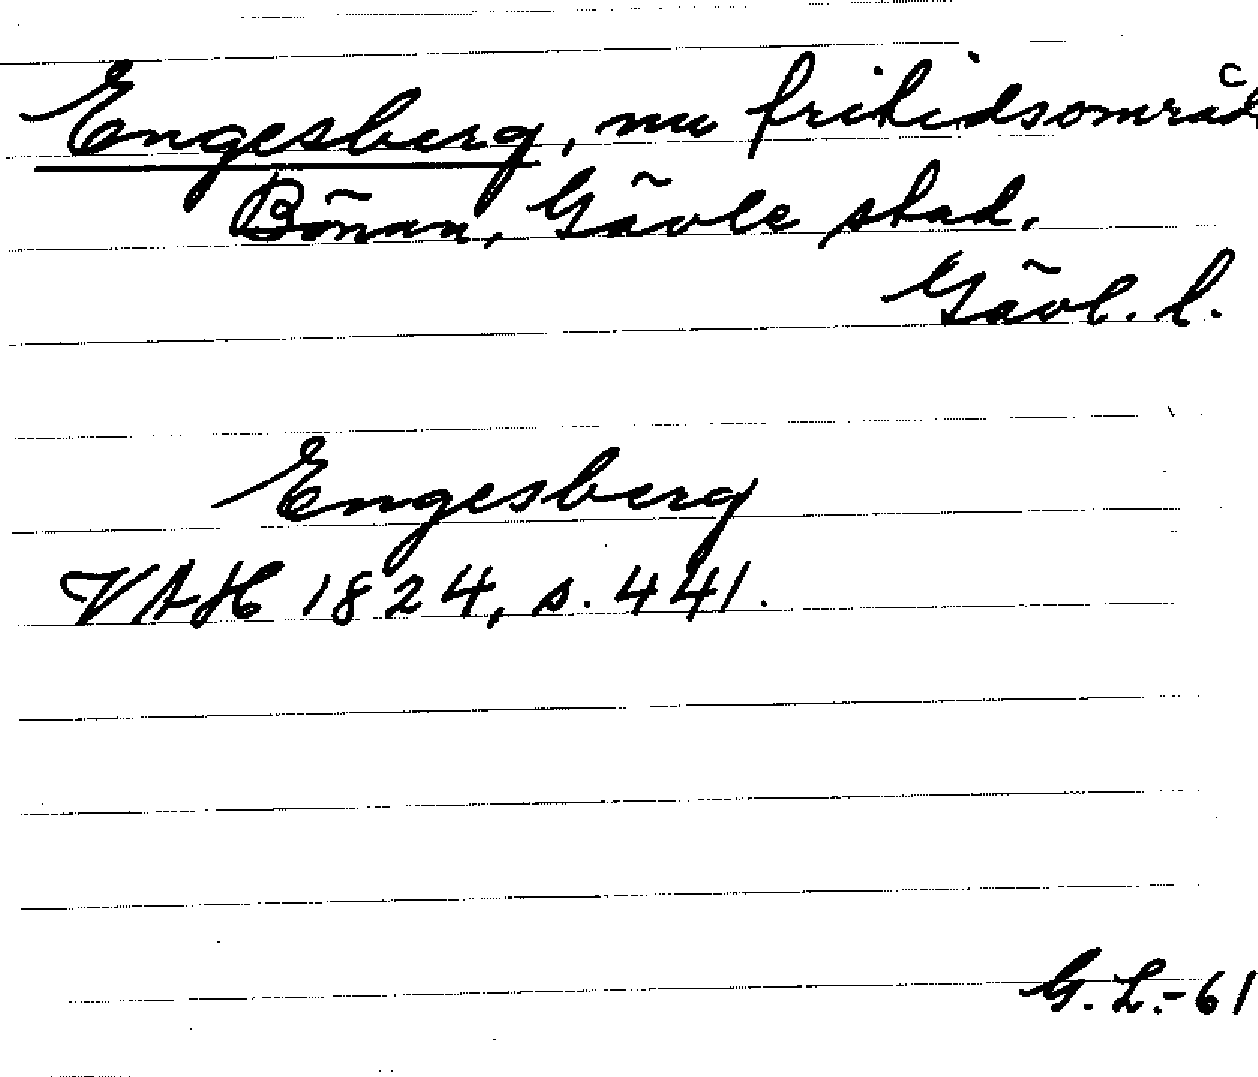 Engesberg, nu fritidsområd
Bönan, Gävle stad.
Gävl. l.
Engesberg
VAH 1824, s. 441.
G. L.-61